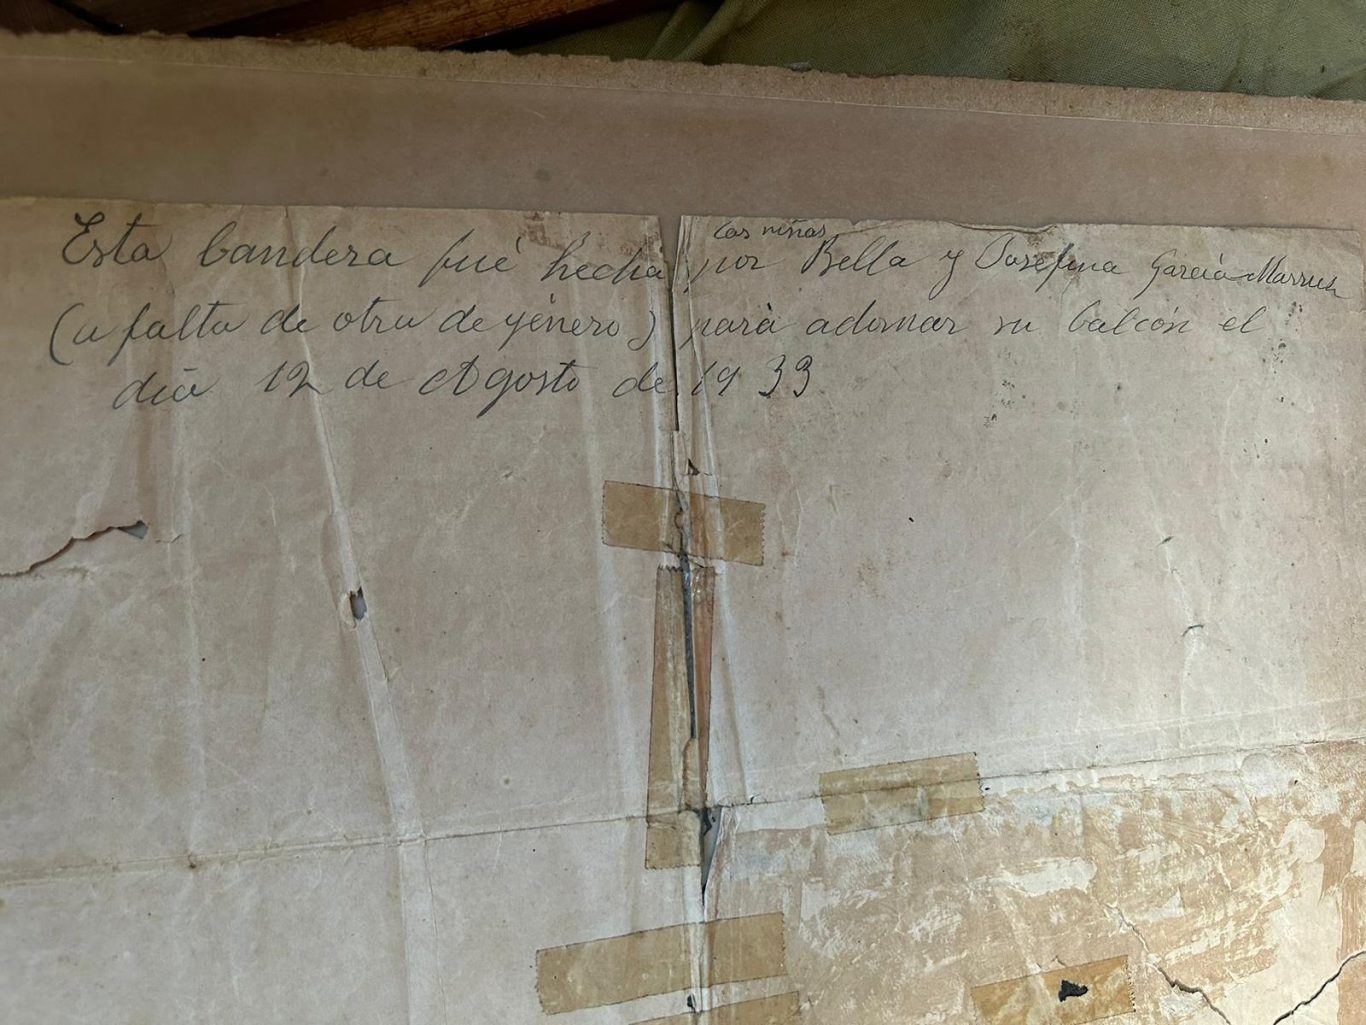 Esta bandera fué hecha por las niñas Bella y Josefina García-Marruz
(a falta de otra de género) para adornar su balcón el
día 12 de Agosto de 1933